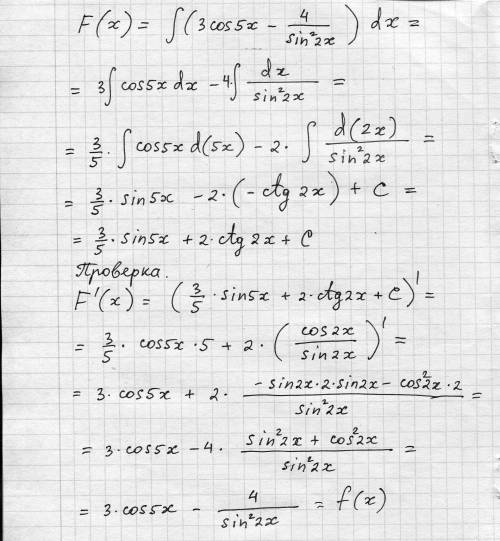 F(x) = ∫(3cos5x - 4/sin²2x) dx =
= 3∫cos5x dx - 4·∫dx/sin²2x =
= 3/5 · ∫cos5x d(5x) - 2 · ∫d(2x)/sin²2x =
= 3/5 · sin5x - 2·(-ctg 2x) + C =
= 3/5 · sin5x + 2·ctg 2x + C
Проверка.
F'(x) = (3/5 · sin5x + 2·ctg2x + C)' =
= 3/5 · cos5x · 5 + 2 · (cos2x/sin2x)' =
= 3·cos5x + 2 · (-sin2x·2·sin2x - cos²2x·2)/sin²2x =
= 3·cos5x - 4 · (sin²2x + cos²2x)/sin²2x =
= 3·cos5x - 4/sin²2x = f(x)